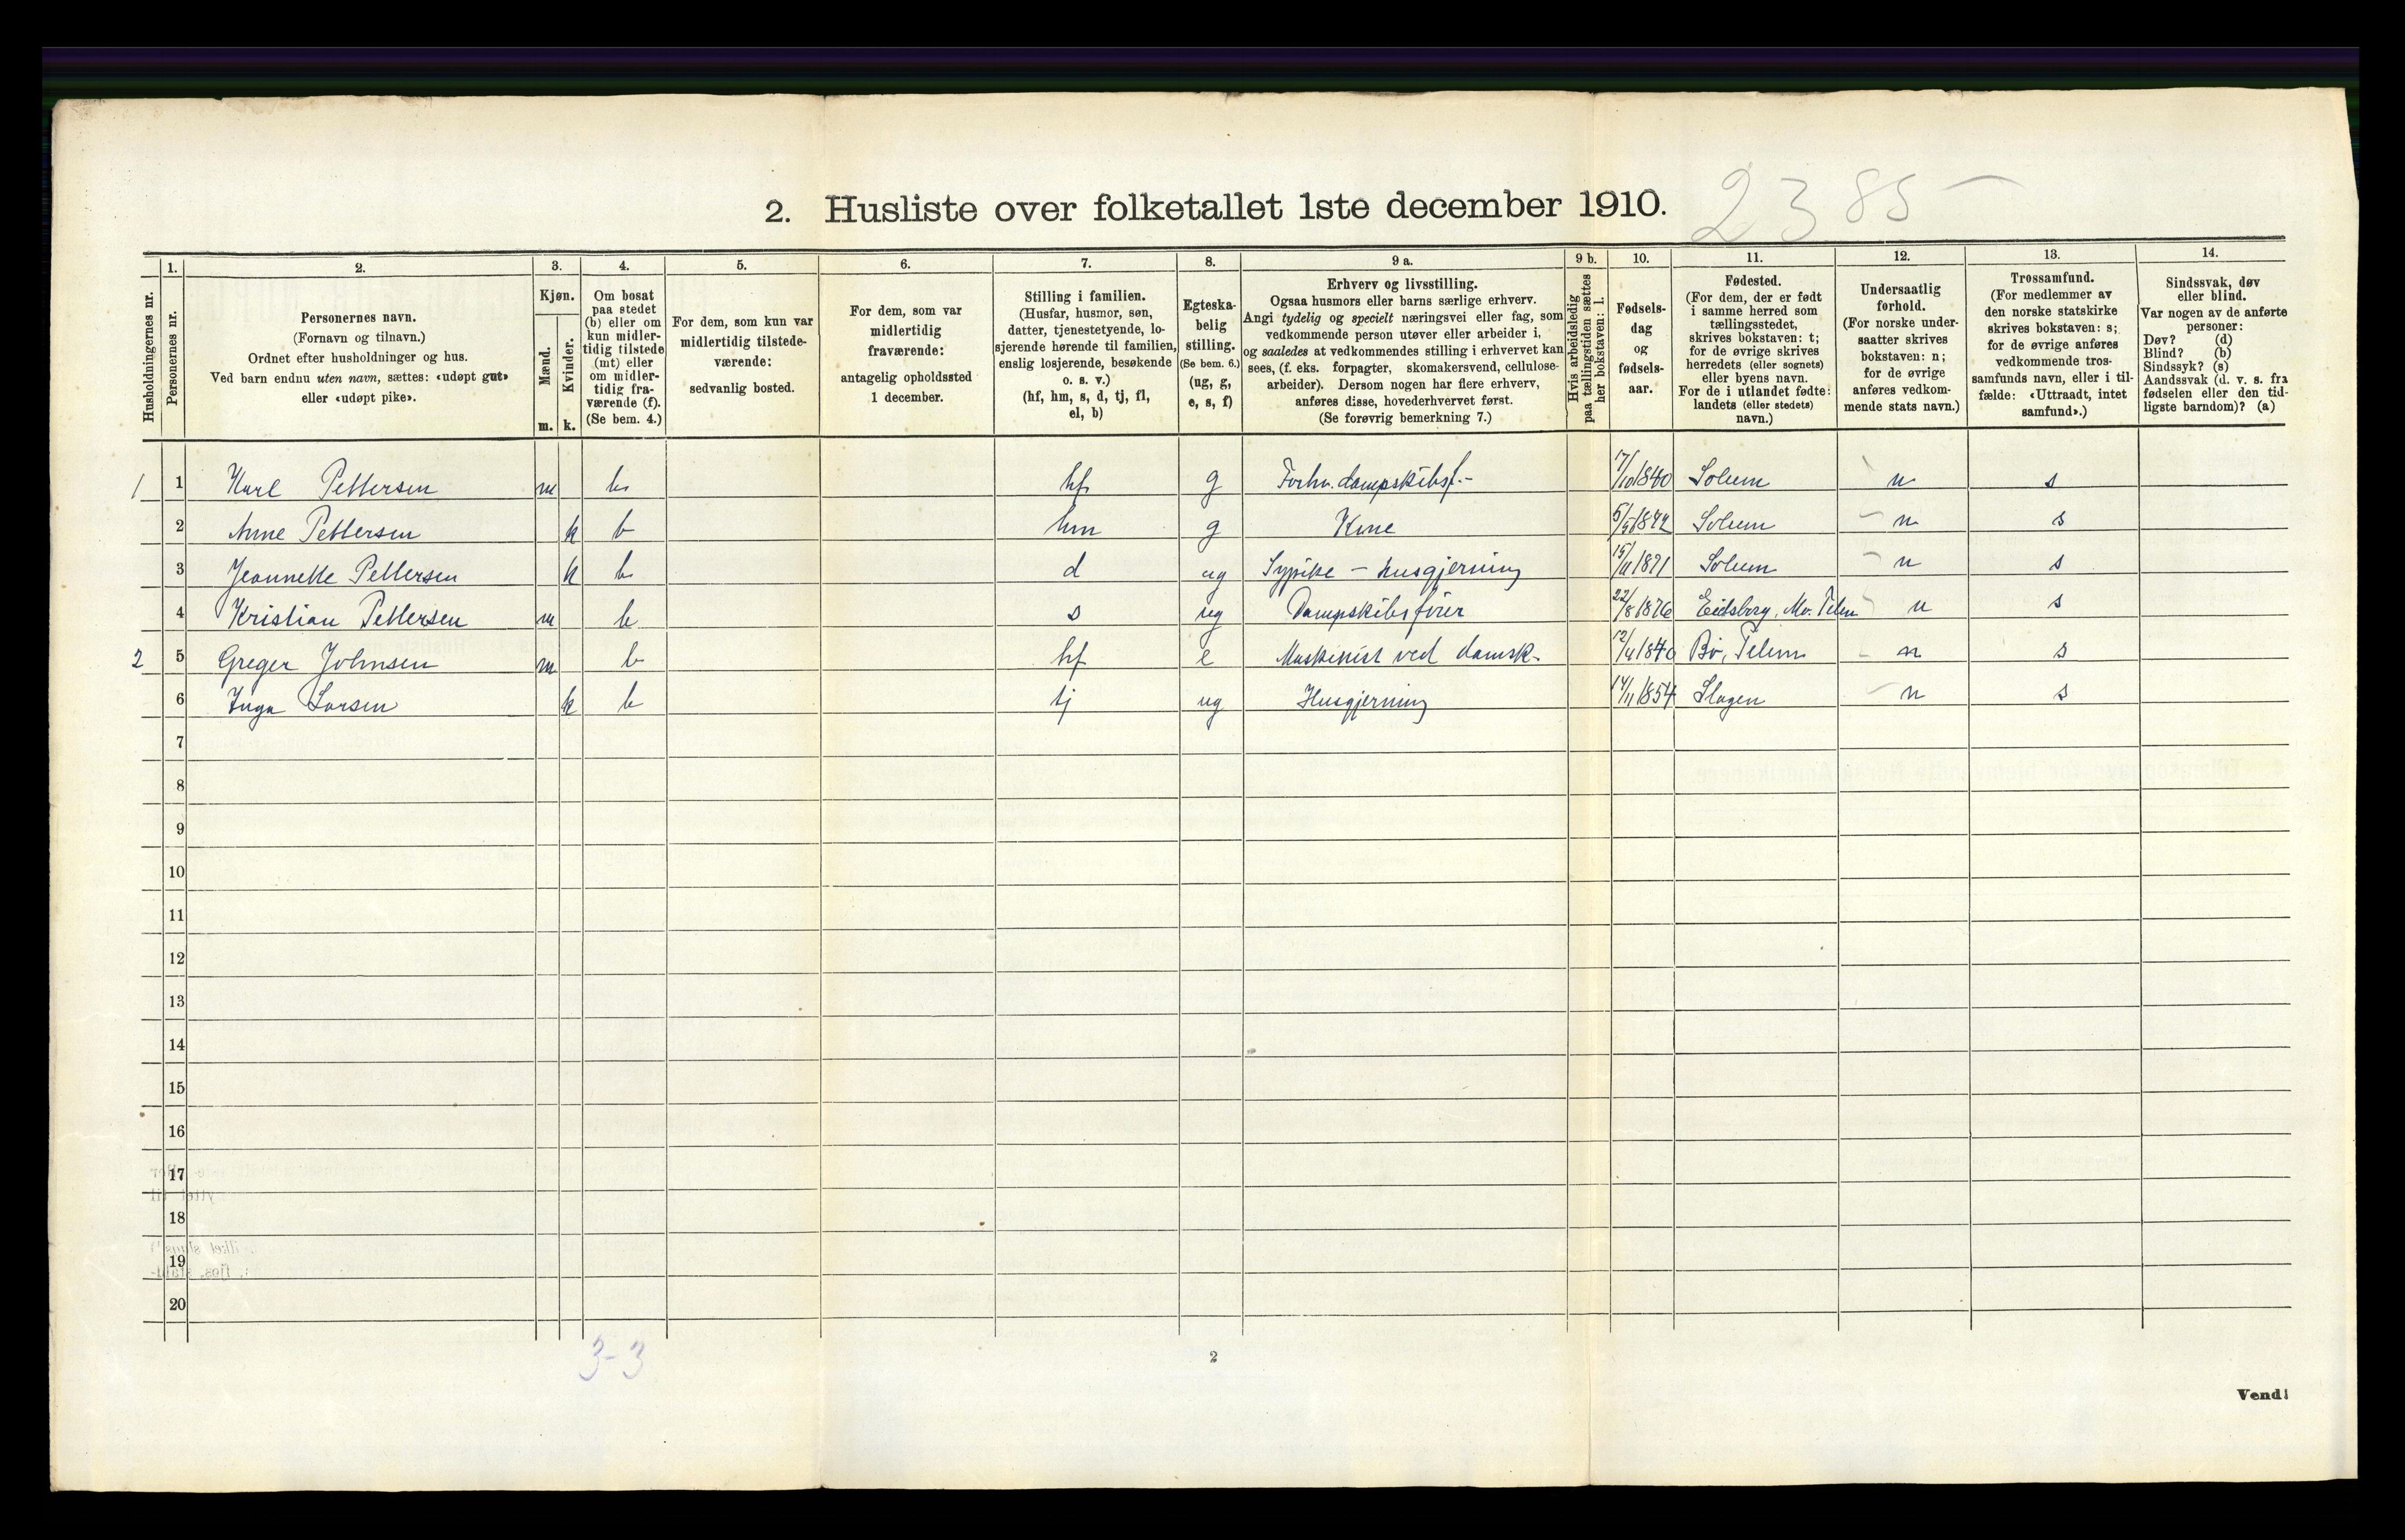 2. Husliste over folketallet 1ste december 1910. 2385
Husholdningernes nr.
1. Personernes nr.
2. Personernes navn.
(Fornavn og tilnavn.)
Ordnet efter husholdninger og hus.
Ved barn endnu uten navn, sættes: «udøpt gut»
eller «udøpt pike».
3. Kjøn.
Mænd. m.
Kvinder. k.
4. Om bosat
paa stedet
(b) eller om
kun midler-
tidig tilstede
(mt) eller
om midler-
tidig fra-
værende (f).
(Se bem. 4.)
5. For dem, som kun var
midlertidig tilstede-
værende:
sedvanlig bosted.
6. For dem, som var
midlertidig
fraværende:
antagelig opholdssted
1 december.
7. Stilling i familien.
(Husfar, husmor, søn,
datter, tjenestetyende, lo-
sjerende hørende til familien,
enslig losjerende, besøkende
o. s. v.)
(hf, hm, s, d, tj, fl,
el, b)
8. Egteska-
belig
stilling.
(Se bem. 6.)
(ug, g,
e, s, f)
9 a. Erhverv og livsstilling.
Ogsaa husmors eller barns særlige erhverv.
Angi tydelig og specielt næringsvei eller fag, som
vedkommende person utøver eller arbeider i,
og saaledes at vedkommendes stilling i erhvervet kan
sees, (f. eks. forpagter, skomakersvend, cellulose-
arbeider). Dersom nogen har flere erhverv,
anføres disse, hovederhvervet først.
(Se forøvrig bemerkning 7.)
9 b. Hvis arbeidsledig
paa tællingstiden sættes
her bokstaven: l.
10. Fødsels-
dag
og
fødsels-
aar.
11. Fødested.
(For dem, der er født
i samme herred som
tællingsstedet,
skrives bokstaven: t;
for de øvrige skrives
herredets (eller sognets)
eller byens navn.
For de i utlandet fødte:
landets (eller stedets)
navn.)
12. Undersaatlig
forhold.
(For norske under-
saatter skrives
bokstaven: n;
for de øvrige
anføres vedkom-
mende stats navn.)
13. Trossamfund.
(For medlemmer av
den norske statskirke
skrives bokstaven: s;
for de øvrige anføres
vedkommende tros-
samfunds navn, eller i til-
fælde: «Uttraadt, intet
samfund».)
14. Sindssvak, døv
eller blind.
Var nogen av de anførte
personer:
Døv? (d)
Blind? (b)
Sindssyk? (s)
Aandssvak (d. v. s. fra
fødselen eller den tid-
ligste barndom)? (a)
1 1 Karl Pettersen m b hf g Forhv. dampskibsf.- 17/10 1840 Solum n s
2 Anne Pettersen k b hm g Kone 5/5 1842 Solum n s
3 Jeannette Pettersen k b d ug Sypike - husgjerning 15/11 1871 Solum n s
4 Kristian Pettersen m b s ug Dampskibsfører 22/8 1876 Eidsborg, Mo. Telem n s
2 5 Greger Johnsen m b hf e Maskinist ved damsk. 12/4 1840 Bø, Telem n s
6 Inga Larsen k b tj ug Husgjerning 14/11 1854 Slagen n s
7
8
9
10
11
12
13
14
15
16
17
18
19
20
3-3
2
Vend!